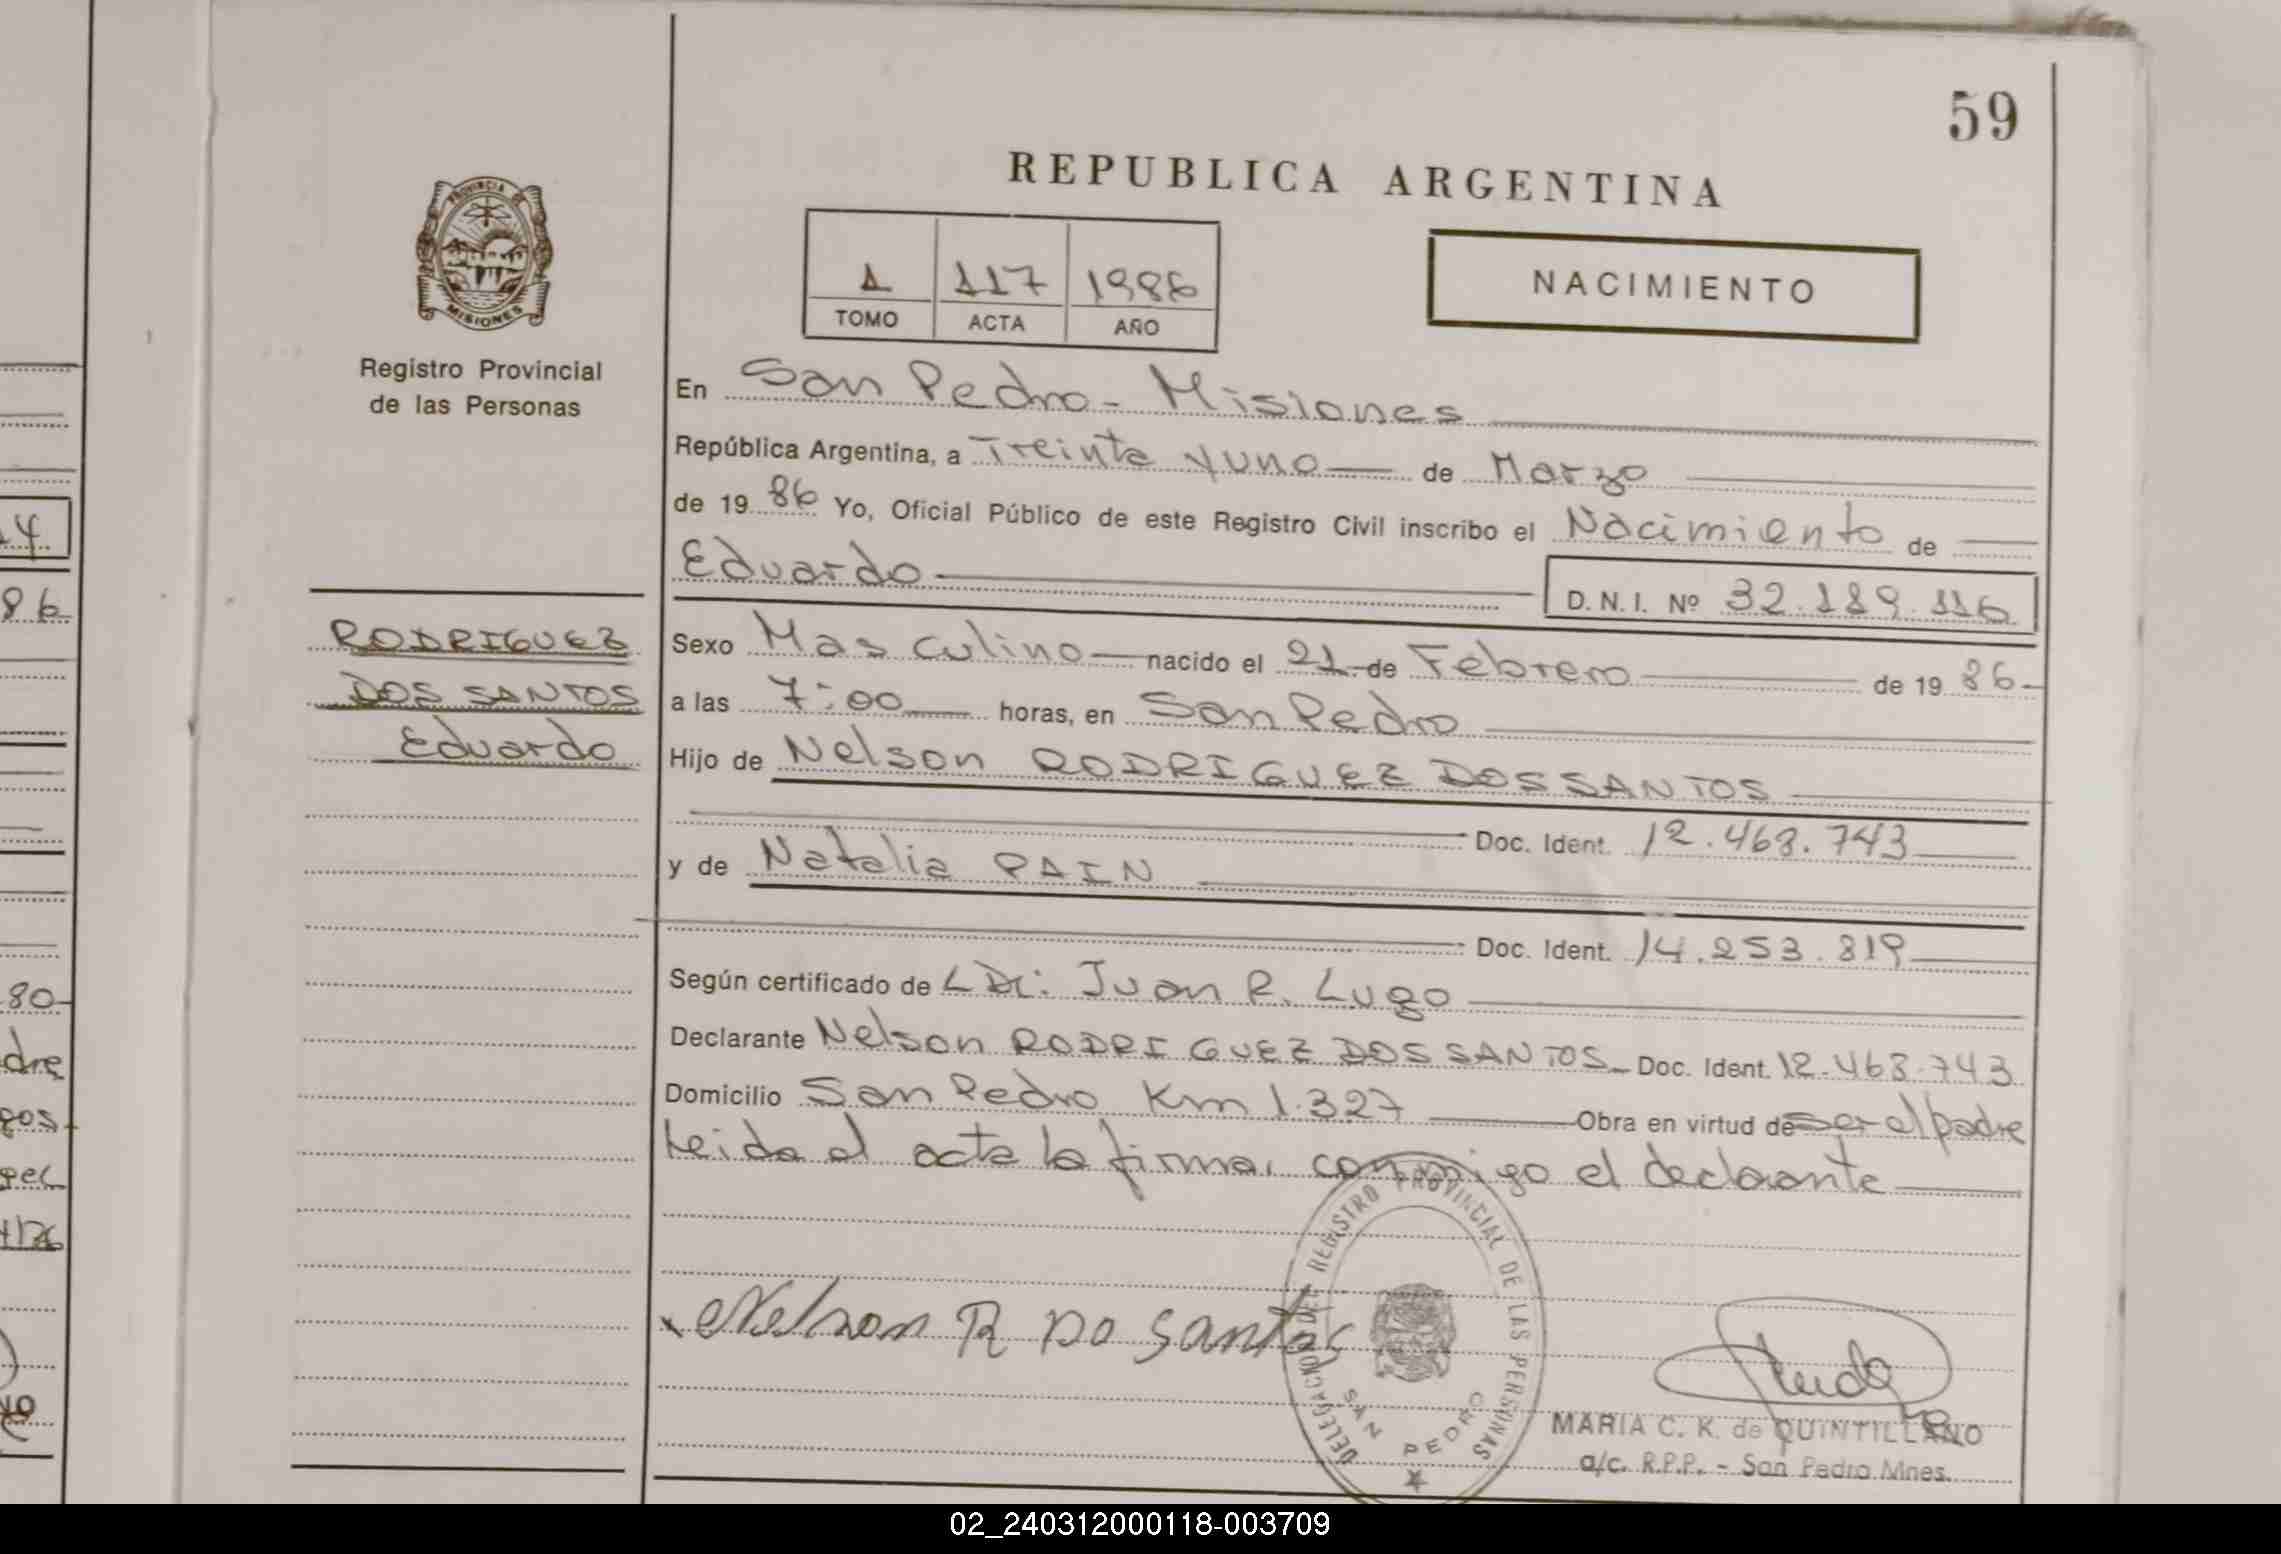 59
REPUBLICA ARGENTINA
PROVINCIA DE
MISIONES
Registro Provincial
de las Personas
1 117 1986
TOMO ACTA AÑO
NACIMIENTO
En San Pedro - Misiones
República Argentina, a Treinta y uno de Marzo
de 19 86 Yo, Oficial Público de este Registro Civil inscribo el Nacimiento de
Eduardo D. N. I. Nº 32.189.116
RODRIGUEZ
DOS SANTOS
Eduardo
Sexo Masculino nacido el 21 de Febrero de 19 86
a las 7:00 horas, en San Pedro
Hijo de Nelson RODRIGUEZ DOS SANTOS
Doc. Ident. 12.468.743
y de Natalia PAIN
Doc. Ident. 14.253.819
Según certificado de Juan R. Lugo
Declarante Nelson RODRIGUEZ DOS SANTOS Doc. Ident. 12.468.743
Domicilio San Pedro Km 1.327 Obra en virtud de ser el padre
Leida el acta la firma, conmigo el declarante
Nelson R Do Santos
DELEGACION DEL REGISTRO PROVINCIAL DE LAS PERSONAS
SAN PEDRO
MARIA C. K. de QUINTILLANO
a/c. R.P.P. - San Pedro Mnes.
4
86
80
dre
gos
pec
02_240312000118-003709